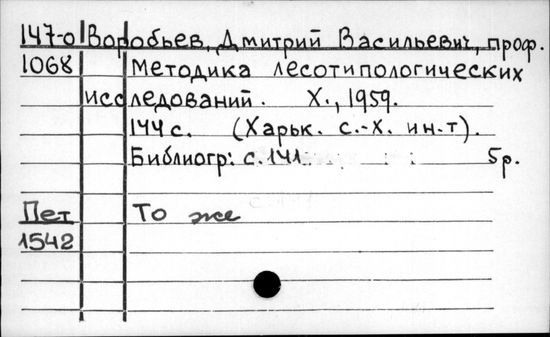 147-0 Воробьев, Дмитрий Васильевич, проф.
1068 Методика лесотипологических
исследований. Х., 1959.
144 с. (Харьк. с.-х. ин-т).
Библиогр: с. 141 5р.
Пет То же
1542